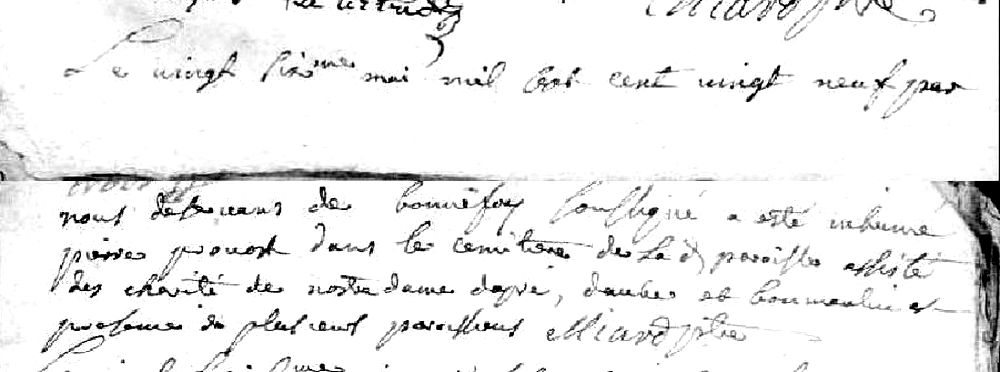 Le vingt sixme mai mil sept cent vingt neuf par
nous desservant de bonnefoy soussigné a esté inhumé
pierre provost dans le cemitiere de la d paroisse assisté
des charité de nostre dame dapré, daube et bonmoulin et
presence de plusieurs paroissiens Miard ptre